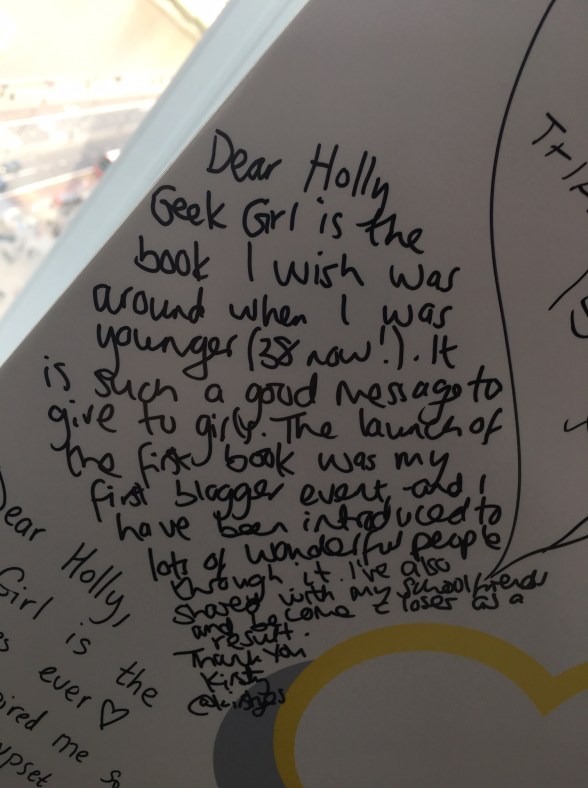 Dear Holly
Geek Girl is the
book I wish was
around when I was
younger (38 now!). It
is such a good message to
give to girls. The launch of
the first book was my
first blogger event, and I
have been introduced to
lots of wonderful people
through it. I've also
shared with my school friends
and become closer as a
result.
Thank you
Kirsty
Dear Holly,
Girl is the
ever ♡
me so